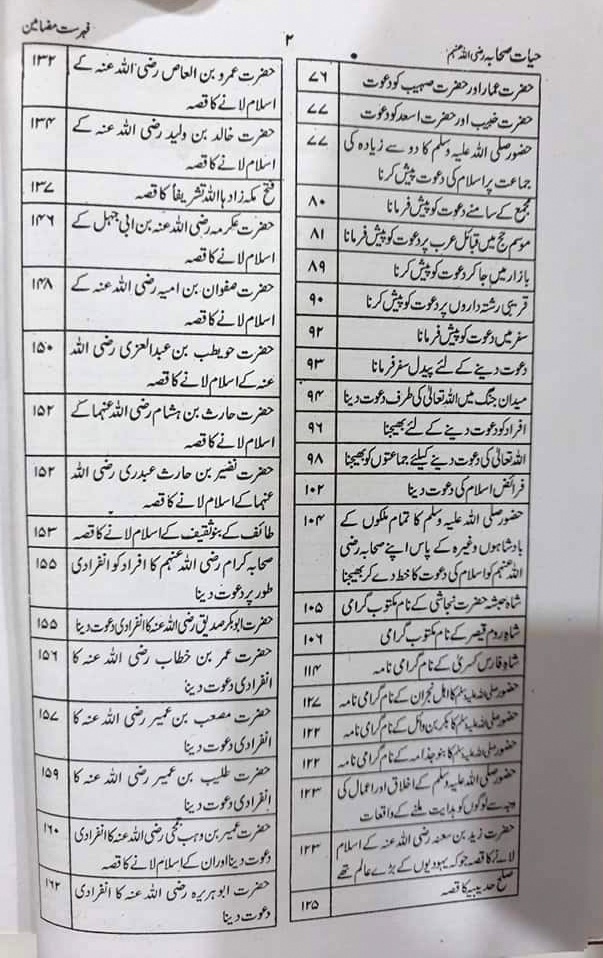 حیات صحابہ رضی اللہ عنہم
۲
فہرست مضامین
حضرت عمار اور حضرت صہیب کو دعوت ۷۶
حضرت خبیب اور حضرت اسعد کو دعوت ۷۷
حضور صلی اللہ علیہ وسلم کا دو سے زیادہ کی ۷۷
جماعت پر اسلام کی دعوت پیش کرنا
مجمع کے سامنے دعوت کو پیش فرمانا ۸۰
موسم حج میں قبائل عرب پر دعوت کو پیش فرمانا ۸۱
بازار میں جا کر دعوت کو پیش کرنا ۸۹
قریبی رشتہ داروں پر دعوت کو پیش کرنا ۹۰
سفر میں دعوت کو پیش فرمانا ۹۲
دعوت دینے کے لئے پیدل سفر فرمانا ۹۳
میدان جنگ میں اللہ تعالیٰ کی طرف دعوت دینا ۹۴
افراد کو دعوت دینے کے لئے بھیجنا ۹۶
اللہ تعالیٰ کی دعوت دینے کیلئے جماعتوں کو بھیجنا ۹۸
فرائض اسلام کی دعوت دینا ۱۰۲
حضور صلی اللہ علیہ وسلم کا تمام ملکوں کے ۱۰۴
بادشاہوں وغیرہ کے پاس اپنے صحابہ رضی
اللہ عنہم کو اسلام کی دعوت کا خط دے کر بھیجنا
شاہ حبشہ حضرت نجاشی کے نام مکتوب گرامی ۱۰۵
شاہ روم قیصر کے نام مکتوب گرامی ۱۰۶
شاہ فارس کسریٰ کے نام گرامی نامہ ۱۱۴
حضور صلی اللہ علیہ وسلم کا اہل نجران کے نام گرامی نامہ ۱۲۷
حضور صلی اللہ علیہ وسلم کا بکر بن وائل کے نام گرامی نامہ ۱۲۲
حضور صلی اللہ علیہ وسلم کا بنو جذامہ کے نام گرامی نامہ ۱۲۲
حضور صلی اللہ علیہ وسلم کے اخلاق اور اعمال کی ۱۲۳
وجہ سے لوگوں کو ہدایت ملنے کے واقعات
حضرت زید بن سعنہ رضی اللہ عنہ کے اسلام ۱۲۳
لانے کا قصہ جو کہ یہودیوں کے بڑے عالم تھے
صلح حدیبیہ کا قصہ ۱۲۵
حضرت عمرو بن العاص رضی اللہ عنہ کے ۱۳۲
اسلام لانے کا قصہ
حضرت خالد بن ولید رضی اللہ عنہ کے ۱۳۴
اسلام لانے کا قصہ
فتح مکہ زادہا اللہ تشریفاً کا قصہ ۱۳۷
حضرت عکرمہ رضی اللہ عنہ بن ابی جہل کے ۱۴۶
اسلام لانے کا قصہ
حضرت صفوان بن امیہ رضی اللہ عنہ کے ۱۴۸
اسلام لانے کا قصہ
حضرت حویطب بن عبدالعزی رضی اللہ ۱۵۰
عنہ کے اسلام لانے کا قصہ
حضرت حارث بن ہشام رضی اللہ عنہما کے ۱۵۲
اسلام لانے کا قصہ
حضرت نضیر بن حارث عبدری رضی اللہ ۱۵۲
عنہما کے اسلام لانے کا قصہ
طائف کے بنو ثقیف کے اسلام لانے کا قصہ ۱۵۳
صحابہ کرام رضی اللہ عنہم کا افراد کو انفرادی ۱۵۵
طور پر دعوت دینا
حضرت ابو بکر صدیق رضی اللہ عنہ کا انفرادی دعوت دینا ۱۵۵
حضرت عمر بن خطاب رضی اللہ عنہ کا ۱۵۶
انفرادی دعوت دینا
حضرت مصعب بن عمیر رضی اللہ عنہ کا ۱۵۷
انفرادی دعوت دینا
حضرت طلیب بن عمیر رضی اللہ عنہ کا ۱۵۹
انفرادی دعوت دینا
حضرت عمیر بن وہب جمحی رضی اللہ عنہ کا انفرادی ۱۶۰
دعوت دینا اور ان کے اسلام لانے کا قصہ
حضرت ابو ہریرہ رضی اللہ عنہ کا انفرادی ۱۶۲
دعوت دینا